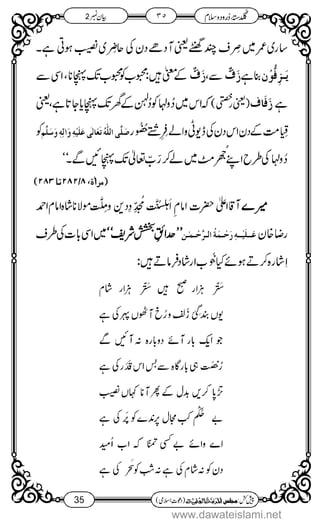 گلدستۂ دُرود و سلام ٣٥ بیان نمبر 2
ساری عمر میں صِرف چند گھنٹے یعنی آدھے دن کی حاضِری نصیب ہوتی ہے۔
یَزُفُّوْنَ بنا ہے زَفٌّ سے، زَفّ کے معنیٰ ہیں: محبوب کو محبوب تک پہنچانا، اسی سے
ہے زَفَاف (یعنی رُخصتی) اس میں کہ دُولہا کو دُلہن کے گھر تک پہنچایا جاتا ہے، یعنی
قِیامت کے دن اس دن کی ڈیوٹی والے فِرِشتے حُضُور صَلَّی اللہُ تَعَالٰی عَلَیْہِ وَاٰلِہٖ وَسَلَّم کو
دُولہا کی طرح اپنے جُھرمٹ میں لے کر رَبّ تعالیٰ تک پہنچائیں گے۔‘‘
(مرآۃ، ٨/٢٨٢ تا ٢٨٣)
میرے آقا اعلیٰ حضرت امامِ اَہلسنّت مُجدِّدِ دین و مِلّت مولانا شاہ امام احمد
رضا خان عَلَیْہِ رَحْمَۃُ الرَّحْمٰن ’’حدائقِ بخشش شریف‘‘ میں اسی بات کی طرف
اِشارہ کرتے ہوئے کیا خُوب ارشاد فرماتے ہیں:
سَتَّر ہزار صبح ہیں سَتَّر ہزار شام
یوں بندگیِ زُلف و رُخ آٹھوں پہر کی ہے
جو ایک بار آئے دوبارہ نہ آئیں گے
رُخصت ہی بارگاہ سے بس اس قَدَر کی ہے
تڑپا کریں بدل کے پھر آنا کہاں نصیب
بے حُکم کب مجال پرندے کو پَر کی ہے
اے وائے بے کسیِ تمنّا کہ اب اُمید
دن کو نہ شام کی ہے نہ شب کو سَحر کی ہے
35
www.dawateislami.net